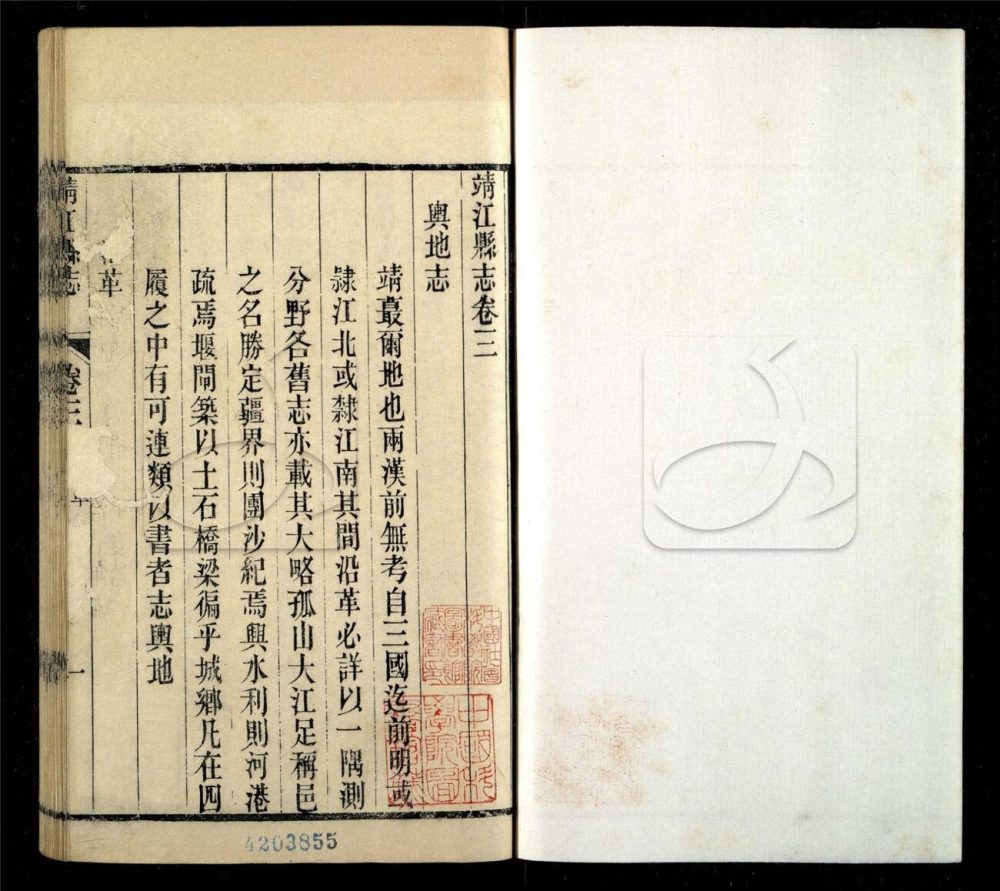 靖江縣志卷三
輿地志
靖蕞爾地也兩漢前無考自三國迄前明或
隷江北或隸江南其間沿革必詳以一隅測
分野各舊志亦載其大略孤山大江足稱邑
之名勝定疆界則團沙紀焉興水利則河港
疏焉堰閘築以土石橋梁徧乎城鄉凡在四
履之中有可連類以書者志輿地
革
靖江縣志
卷三
一
4203855